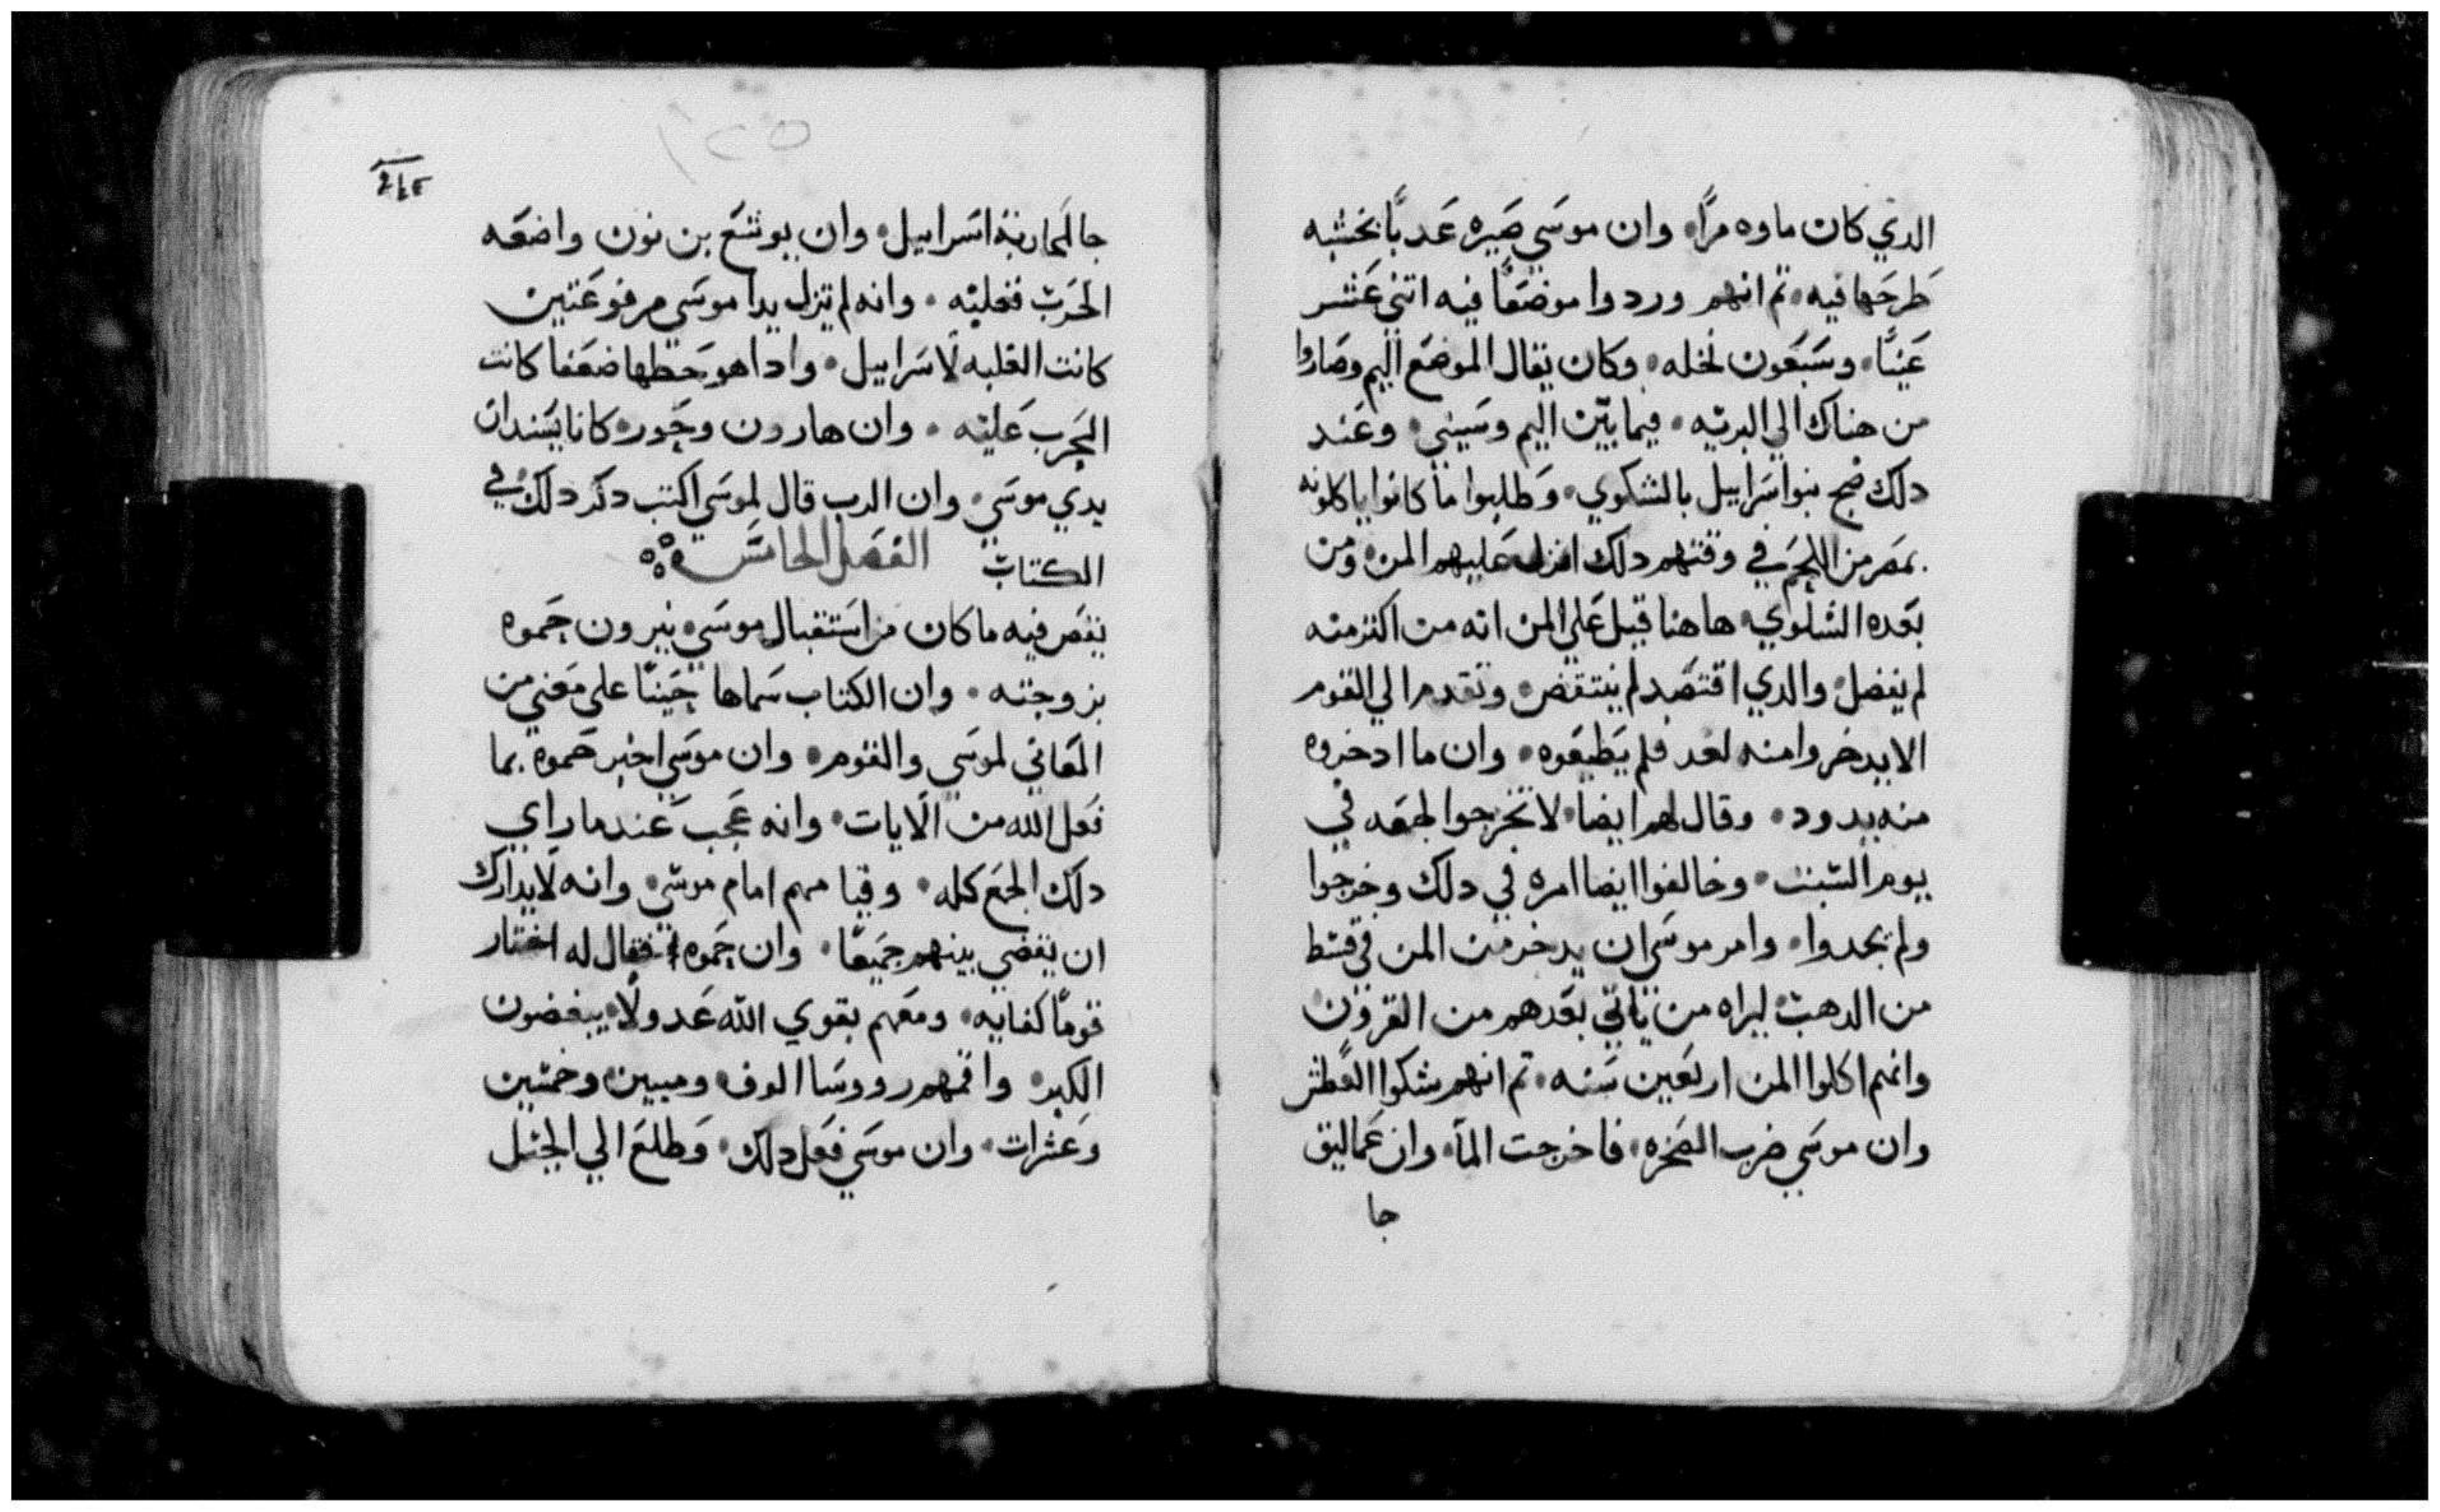 الدي كان ماوه مرًا وان موسي صيره عدبًا بخشبه
طرحها فيه تم انهم وردوا موضعًا فيه اتني عشر
عينًا وسبعون نخله وكان يقال الموضع اليم وصاروا
من هناك الي البريه فيما بين اليم وسيني وعند
دلك ضج بنو اسراييل بالشكوي وطلبوا ما كانوا ياكلونه
بمصر من اللحم في وقتهم دلك انزل عليهم المن ومن
بعده السلوي هاهنا قيل علي المن انه من اكتر منه
لم يفضل والدي اقتصد لم ينتقص وتقدم الي القوم
الا يدخروا منه لغد فلم يطيعوه وان ما ادخروه
منه يدود وقال لهم ايضا لا تخرجوا لجمعه في
يوم السبت وخالفوا ايضا امره في دلك وخرجوا
ولم يجدوا وامر موسي ان يدخر من المن في قسط
من الدهب ليراه من ياتي بعدهم من القرون
وانهم اكلوا المن اربعين سنه تم انهم شكوا العطش
وان موسي ضرب الصخره فاخرجت المآ وان عماليق
جا
جا لمحاربة اسراييل وان يوشع بن نون واضعه
الحرب فغلبه وانه لم تزل يدا موسي مرفوعتين
كانت الغلبه لاسراييل وادا هو حطها ضعفا كانت
الحرب عليه وان هارون وحور كانا يسندان
يدي موسي وان الرب قال لموسي اكتب دكر دلك في
الكتاب الفصل الخامس
يقص فيه ما كان من استقبال موسي يترون حموه
بزوجته وان الكتاب سماها حينًا علي معني من
المعاني لموسي والقوم وان موسي اخبر حموه بما
فعل الله من الايات وانه عجب عندما راي
دلك الجمع كله وقيامهم امام موسي وانه لا يدارك
ان يقضي بينهم جميعًا وان حموه فقال له اختار
قومًا كفايه ومعهم بقوي الله عدولًا يبغضون
الكبر واقمهم رووسا الوف وميين وخمسين
وعشرات وان موسي فعل دلك وطلع الي الجبل